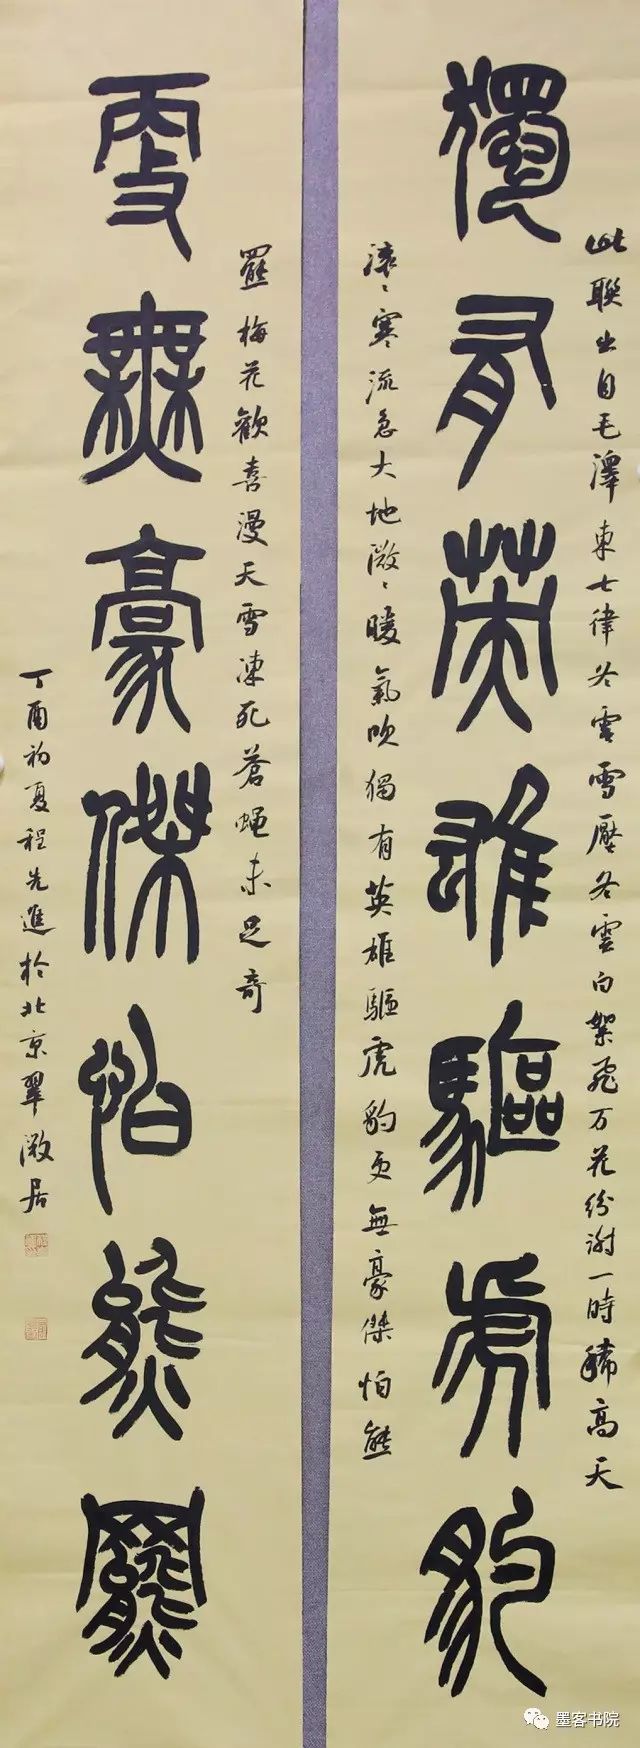 此聯出自毛澤東七律冬雲雪壓冬雲白絮飛万花紛謝一時稀高天
獨有英雄驅虎豹
滾々寒流急大地微々暖氣吹獨有英雄驅虎豹更無豪傑怕熊
羆梅花歡喜漫天雪凍死蒼蠅未足奇
更無豪傑怕熊羆
丁酉初夏程先進於北京翠微居
墨客书院